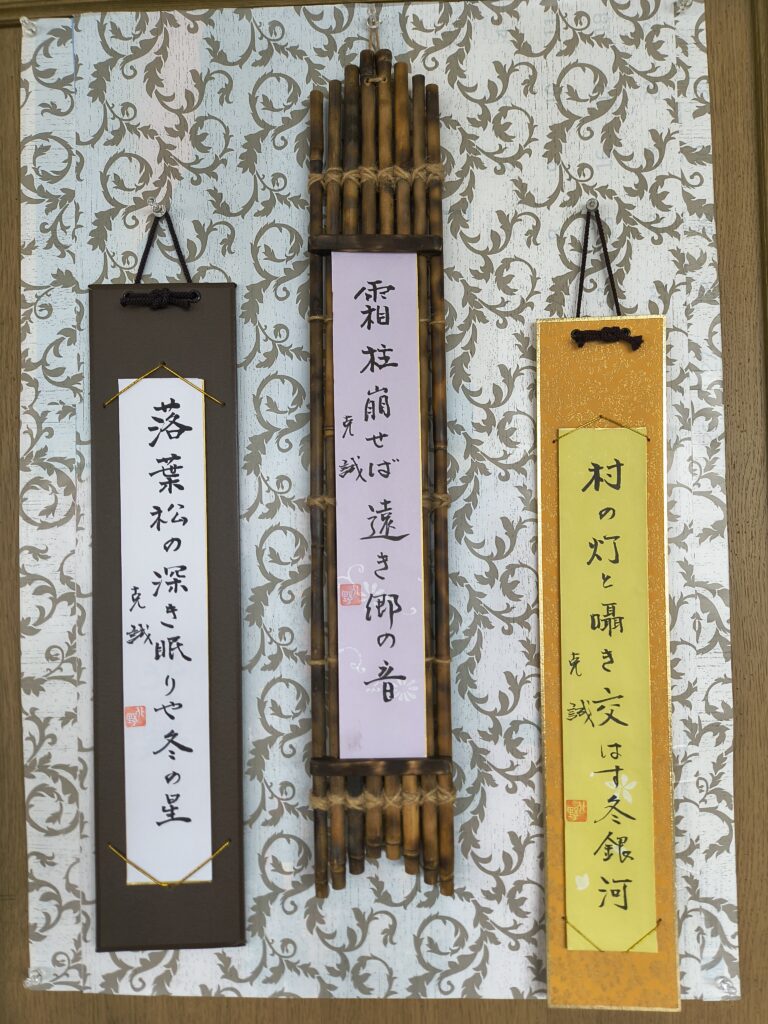 村の灯と囁き交はす冬銀河
克誠
霜柱崩せば遠き郷の音
克誠
落葉松の深き眠りや冬の星
克誠